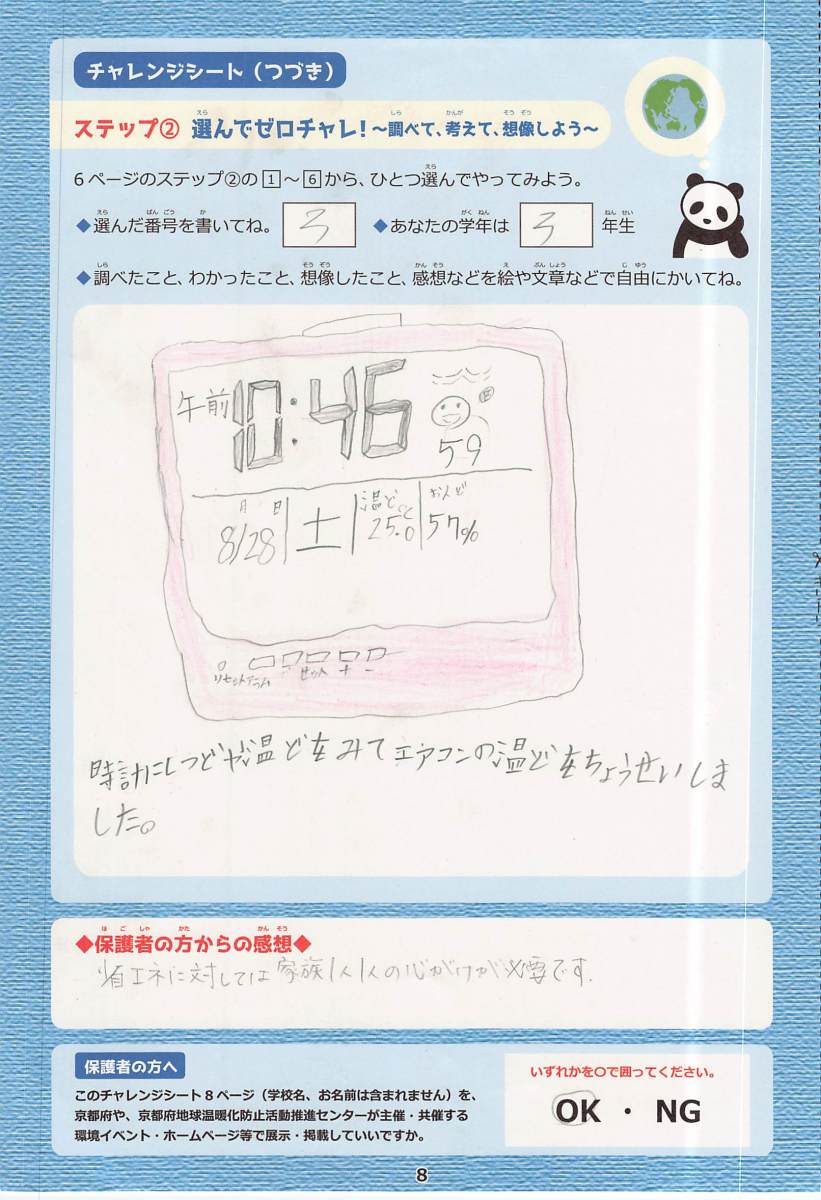 チャレンジシート（つづき）
ステップ② 選んでゼロチャレ！～調べて、考えて、想像しよう～
6ページのステップ②の1～6から、ひとつ選んでやってみよう。
◆選んだ番号を書いてね。 3 ◆あなたの学年は 3 年生
◆調べたこと、わかったこと、想像したこと、感想などを絵や文章などで自由にかいてね。
午前 10:46
59
月 日 温ど おんど
8/28 土 25.0℃ 57%
リセット アラム セット + −
時計にしつどや温どをみてエアコンの温どをちょうせいしま
した。
◆保護者の方からの感想◆
省エネに対しては家族1人1人の心がけが必要です.
保護者の方へ
このチャレンジシート8ページ（学校名、お名前は含まれません）を、
京都府や、京都府地球温暖化防止活動推進センターが主催・共催する
環境イベント・ホームページ等で展示・掲載していいですか。
いずれかを○で囲ってください。
OK ・ NG
8